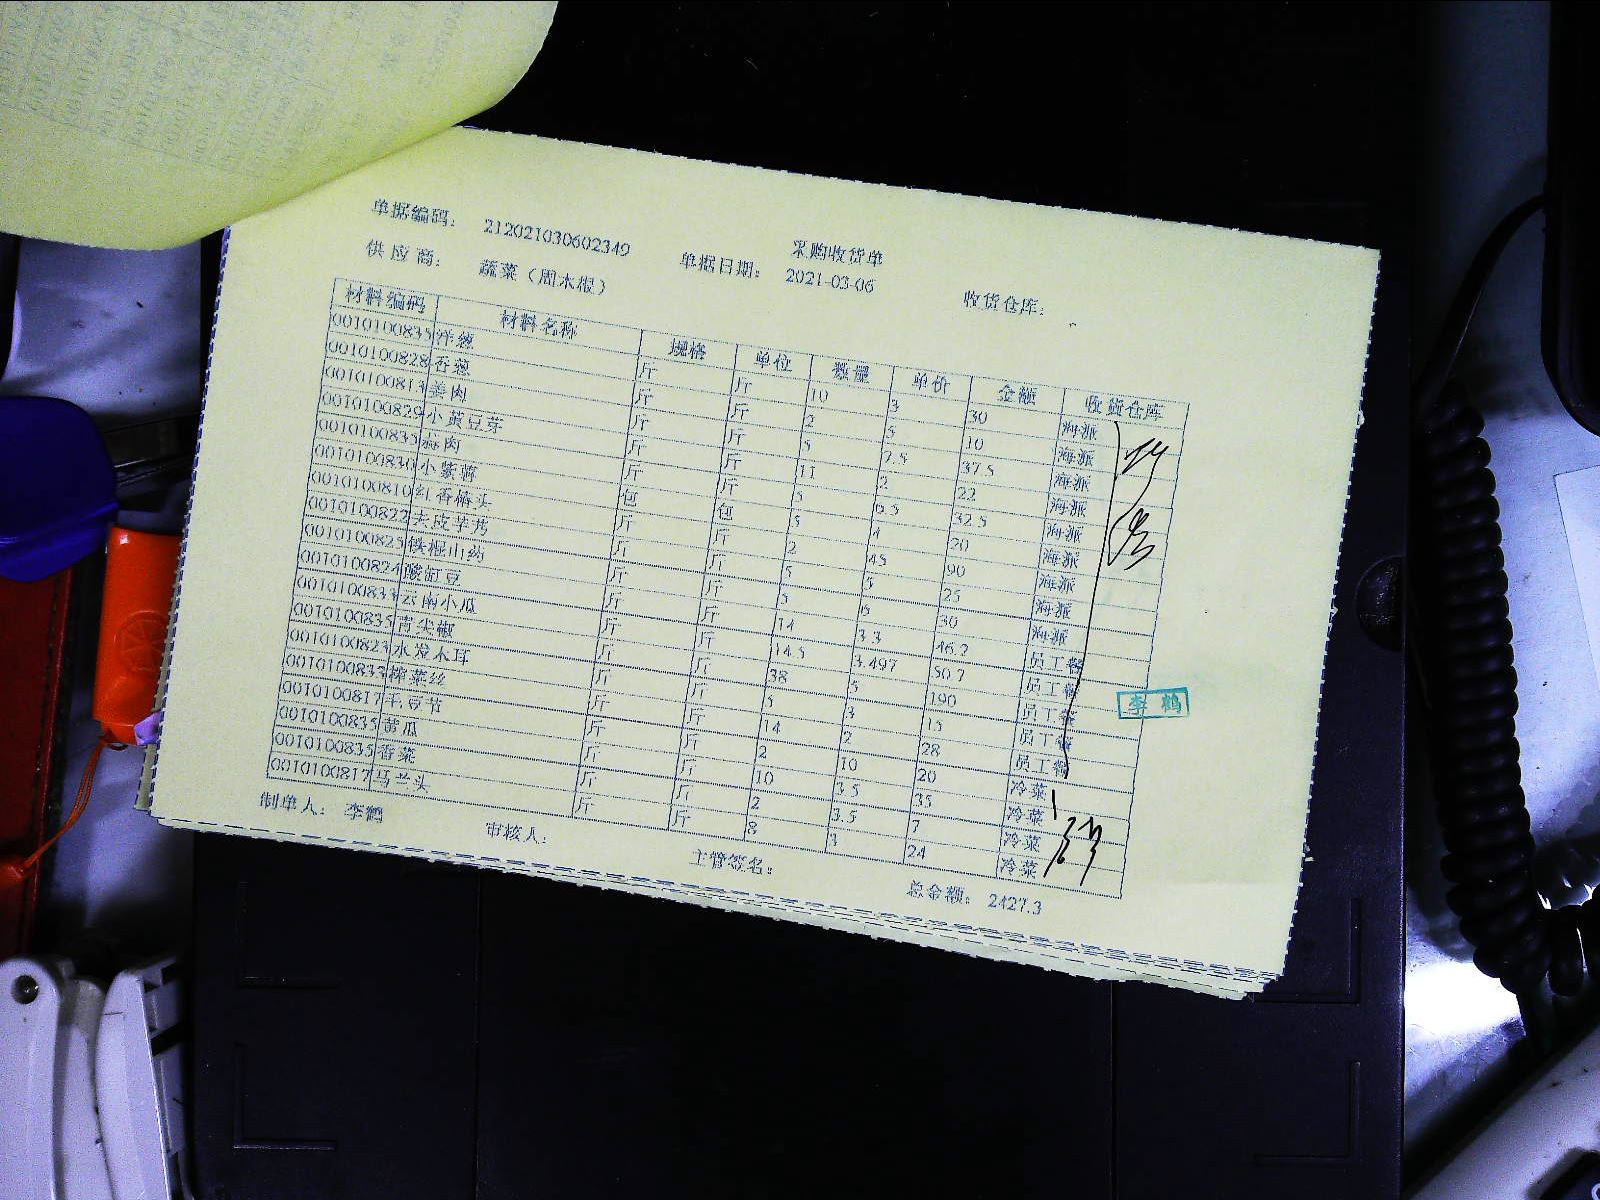 采购收货单
单据编码： 212021030602349 单据日期： 2021-03-06 收货仓库：
供应商： 蔬菜（周木根）
材料编码 材料名称 规格 单位 数量 单价 金额 收货仓库
0010100835 洋葱 斤 斤 10 3 30 海派
0010100828 香葱 斤 斤 2 5 10 海派
0010100813 姜肉 斤 斤 5 7.5 37.5 海派
0010100829 小黄豆芽 斤 斤 11 2 22 海派
0010100835 蒜肉 斤 斤 5 6.5 32.5 海派
0010100830 小紫薯 包 包 5 4 20 海派
0010100810 红香椿头 斤 斤 2 45 90 海派
0010100822 去皮芋艿 斤 斤 5 5 25 海派
0010100825 铁棍山药 斤 斤 5 6 30 海派
0010100824 酸缸豆 斤 斤 14 3.3 46.2 员工餐
0010100833 云南小瓜 斤 斤 14.5 3.497 50.7 员工餐
0010100835 青尖椒 斤 斤 38 5 190 员工餐
0010100823 水发木耳 斤 斤 5 3 15 员工餐
0010100833 榨菜丝 斤 斤 14 2 28 员工餐
0010100817 毛豆节 斤 斤 2 10 20 冷菜
0010100835 黄瓜 斤 斤 10 3.5 35 冷菜
0010100835 香菜 斤 斤 2 3.5 7 冷菜
0010100817 马兰头 斤 斤 8 3 24 冷菜
李鹤
制单人： 李鹤 审核人： 主管签名： 总金额： 2427.3